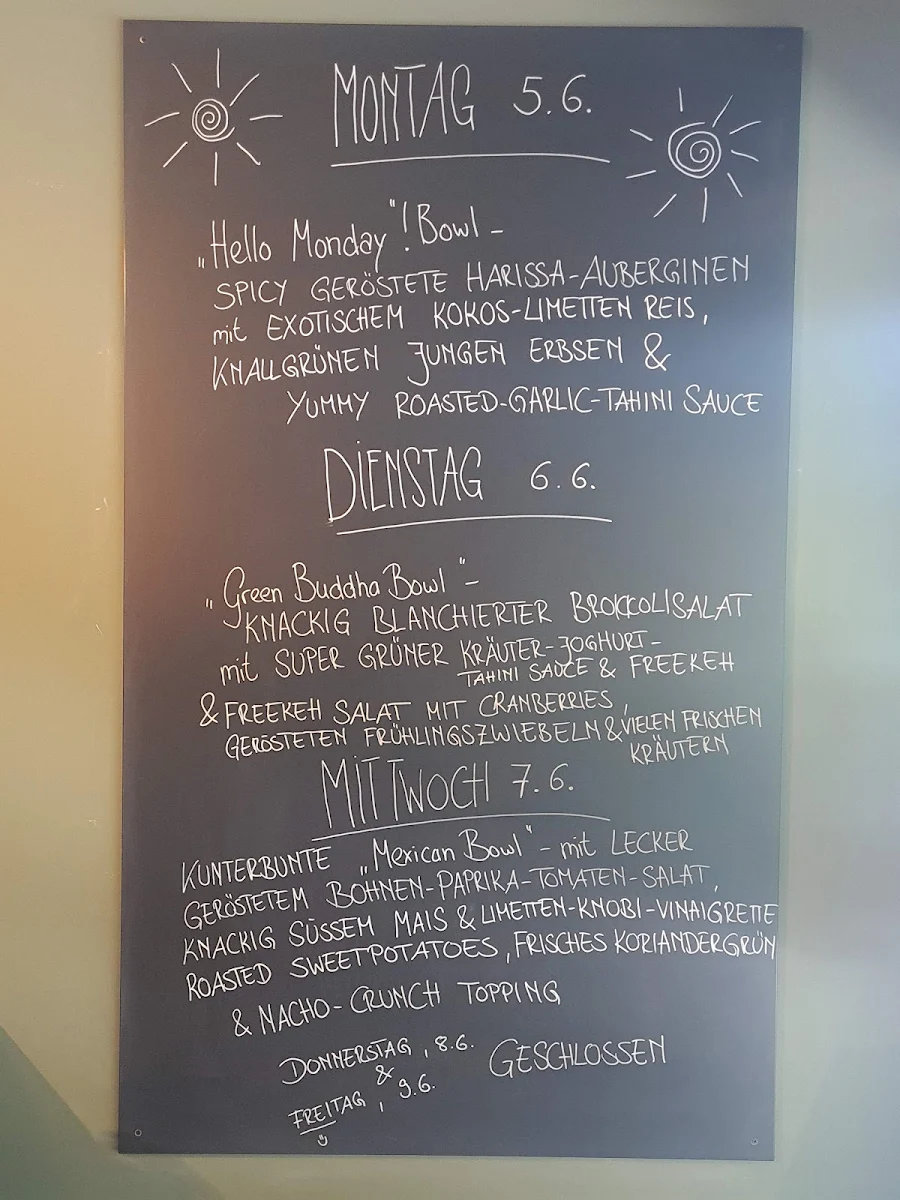 MONTAG 5.6.
„Hello Monday"! Bowl -
SPICY GERÖSTETE HARISSA-AUBERGINEN
mit EXOTISCHEM KOKOS-LIMETTEN REIS,
KNALLGRÜNEN JUNGEN ERBSEN &
YUMMY ROASTED-GARLIC-TAHINI SAUCE
DIENSTAG 6.6.
„Green Buddha Bowl"-
KNACKIG BLANCHIERTER BROKKOLISALAT
mit SUPER GRÜNER KRÄUTER-JOGHURT-
TAHINI SAUCE & FREEKEH
& FREEKEH SALAT MIT CRANBERRIES,
GERÖSTETEN FRÜHLINGSZWIEBELN & VIELEN FRISCHEN
KRÄUTERN
MITTWOCH 7.6.
KUNTERBUNTE „Mexican Bowl" - mit LECKER
GERÖSTETEM BOHNEN-PAPRIKA-TOMATEN-SALAT,
KNACKIG SÜSSEM MAIS & LIMETTEN-KNOBI-VINAIGRETTE
ROASTED SWEETPOTATOES, FRISCHES KORIANDERGRÜN
& NACHO-CRUNCH TOPPING
DONNERSTAG, 8.6. GESCHLOSSEN
&
FREITAG, 9.6.